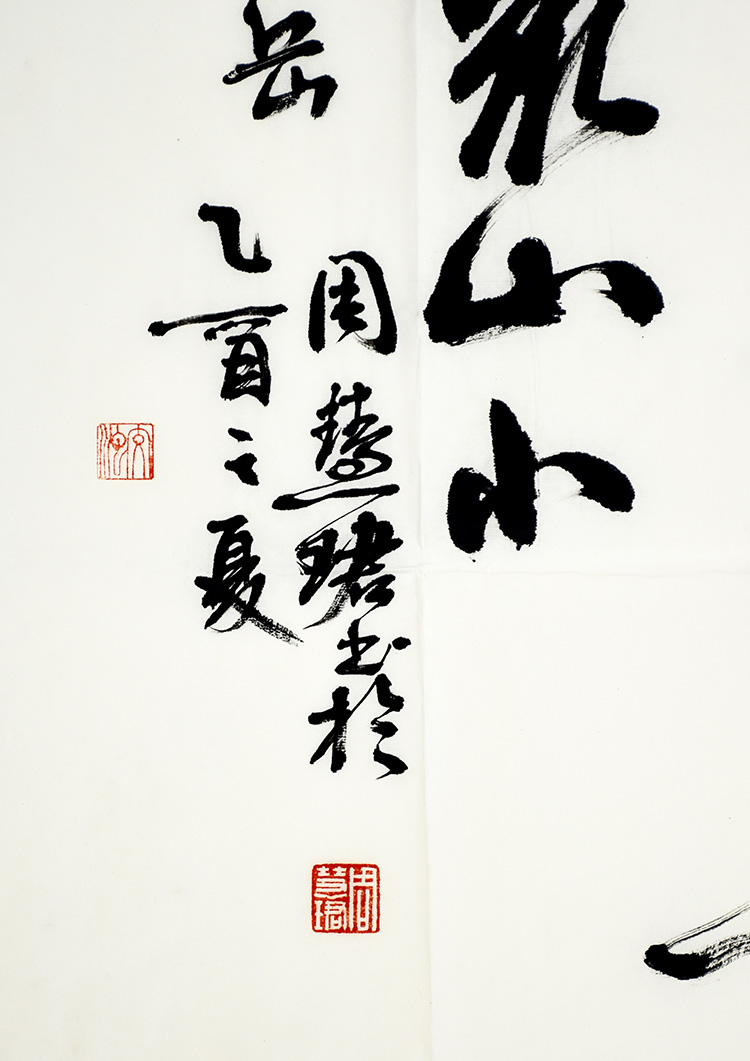 众山小
周慧珺书于
岳
乙酉之夏
周慧珺